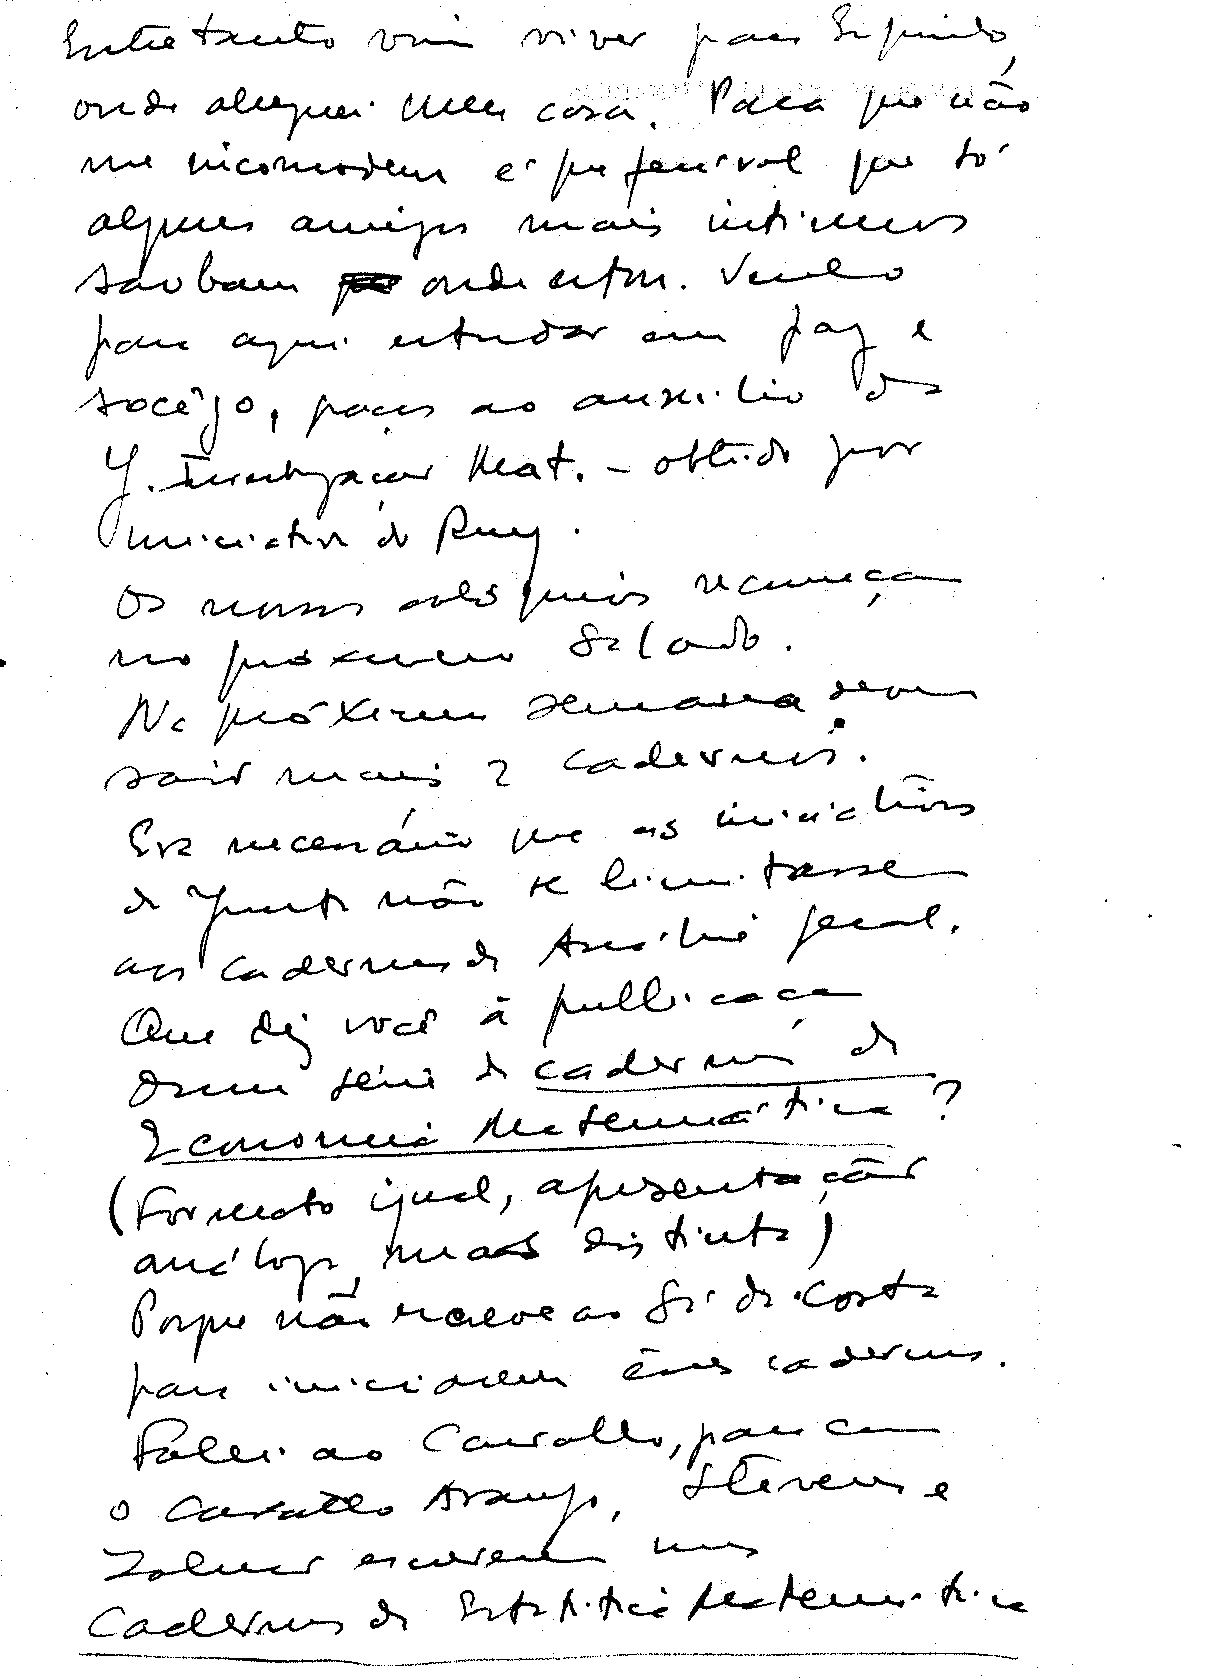 Entretanto vim viver para Espinho,
onde aluguei uma casa. Para que não
me incomodem é preferivel que só
alguns amigos mais intimos
saibam onde estou. Venho
para aqui estudar em paz e
socêgo, graças ao auxilio da
J. Investigação Mat. - obtido por
iniciativa do Ruy.
Os nossos colóquios recomeçam
no próximo Sábado.
Na próxima semana devem
sair mais 2 cadernos.
Era necessário que as iniciativas
da Junta não se limitassem
aos cadernos de Análise Geral.
Que diz você à publicação
duma série de cadernos de
Economia Matemática?
(Formato igual, apresentação
análoga, mas distinta)
Porque não escreve ao Sá da Costa
para iniciarem êsses cadernos.
Falei ao Carvalho, para com
o Carvalho Araujo, Stevens e
Zaluar escreverem uns
Cadernos de Estatistica Matemática